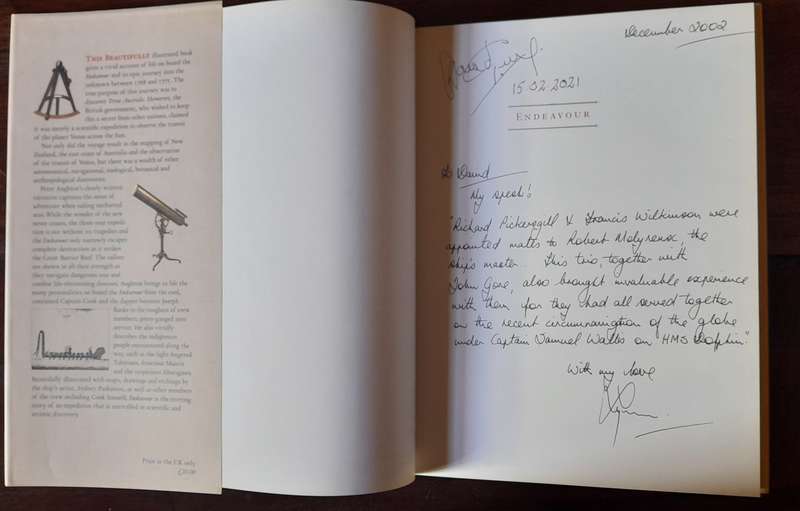 THIS BEAUTIFULLY illustrated book
gives a vivid account of life on board the
Endeavour and its epic journey into the
unknown between 1768 and 1771. The
true purpose of this journey was to
discover Terra Australis. However, the
British government, who wished to keep
this a secret from other nations, claimed
it was merely a scientific expedition to observe the transit
of the planet Venus across the Sun.
Not only did the voyage result in the mapping of New
Zealand, the east coast of Australia and the observation
of the transit of Venus, but there was a wealth of other
astronomical, navigational, zoological, botanical and
anthropological discoveries.
Peter Aughton's clearly written
narrative captures the sense of
adventure when sailing uncharted
seas. While the wonder of the new
never ceases, the three-year expedi-
tion is not without its tragedies and
the Endeavour only narrowly escapes
complete destruction as it strikes
the Great Barrier Reef. The sailors
are shown at all their strength as
they navigate dangerous seas and
combat life-threatening diseases. Aughton brings to life the
many personalities on board the Endeavour from the cool,
contained Captain Cook and the dapper botanist Joseph
Banks to the roughest of crew
members, press-ganged into
service. He also vividly
describes the indigenous
people encountered along the
way, such as the light-fingered
Tahitians, ferocious Maoris
and the suspicious Aborigines.
Beautifully illustrated with maps, drawings and etchings by
the ship's artist, Sydney Parkinson, as well as other members
of the crew including Cook himself, Endeavour is the riveting
story of an expedition that is unrivalled in scientific and
artistic discovery.
Price in the UK only
£20.00
December 2002
15.02.2021
ENDEAVOUR
To David
My speak's
"Richard Pickersgill & Francis Wilkinson were
appointed mates to Robert Molyneux, the
ship's master... This trio, together with
John Gore, also brought invaluable experience
with them for they had all served together
on the recent circumnavigation of the globe
under Captain Samuel Wallis on HMS Dolphin."
With my love